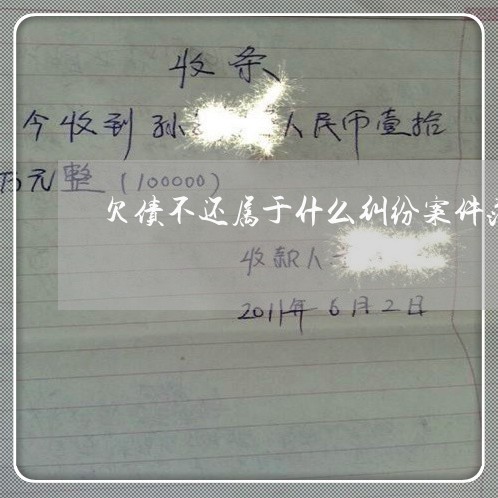 收条
今收到孙 人民币壹拾
万元整（100000）
欠债不还属于什么纠纷案件
收款人
2011年6月2日